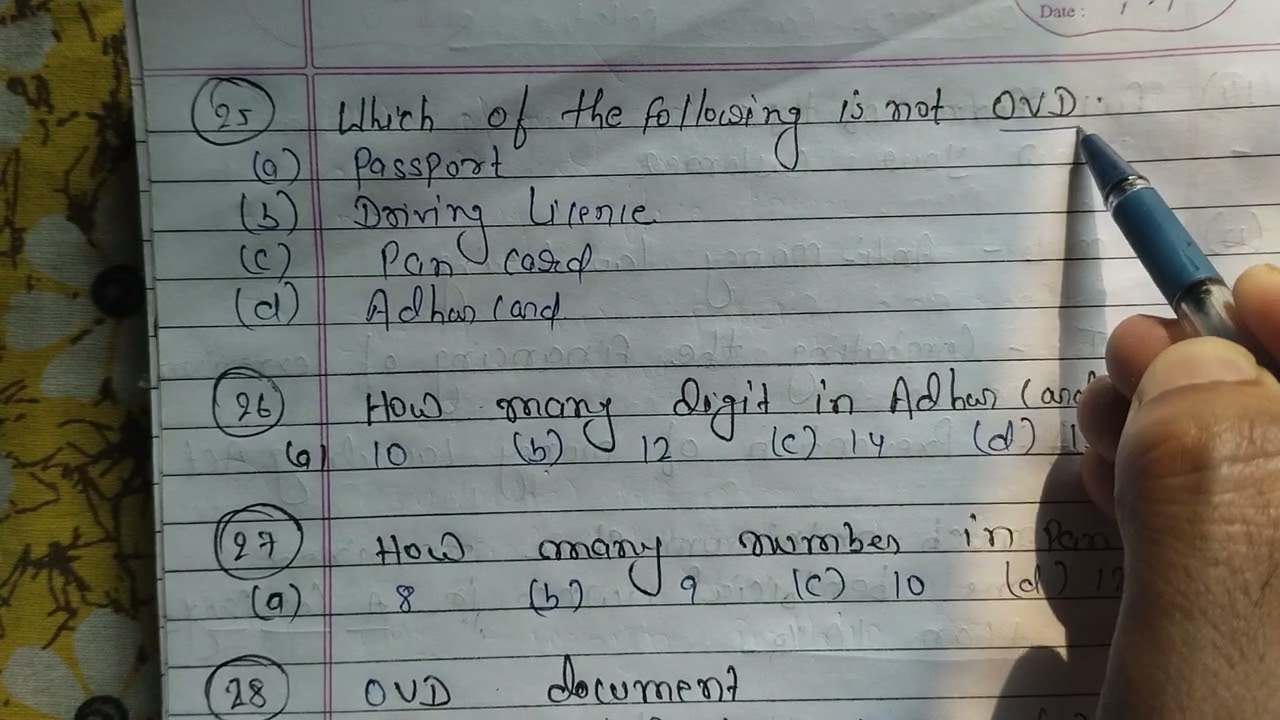 Date :
25 Which of the following is not OVD.
(a) Passport
(b) Driving Licenie
(c) Pan card
(d) Adhar Card
26 How many digit in Adhar Card
(a) 10 (b) 12 (c) 14 (d) 1
27 How many number in Pan
(a) 8 (b) 9 (c) 10 (d) 12
28 OVD document